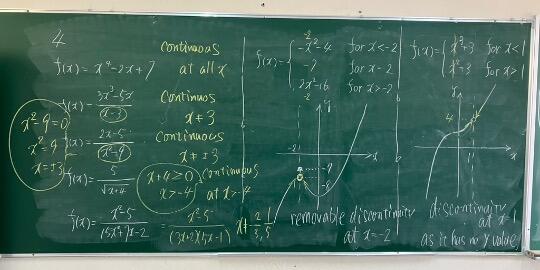 4
f(x) = x⁴-2x+7
continuous
at all x
f(x) = 3x³-5x / x-3
Continuos
x ≠ 3
x²-9=0
x²=9
x=±3
f(x) = 2x-5 / x²-9
Continuous
x ≠ ±3
f(x) = 5 / √x+4
x+4≥0
x>-4
continuous
at x>-4
f(x) = x²-5
= x²-5
f(x)= { -x²-4 for x<-2
-2 for x=-2
2x²-16 for x>-2
-2
x
removable discontinuity
at x=-2
f(x)= { x³+3 for x<1
x²-3 for x>1
y
4
x
discontinuity
at x=1
as it has no y value